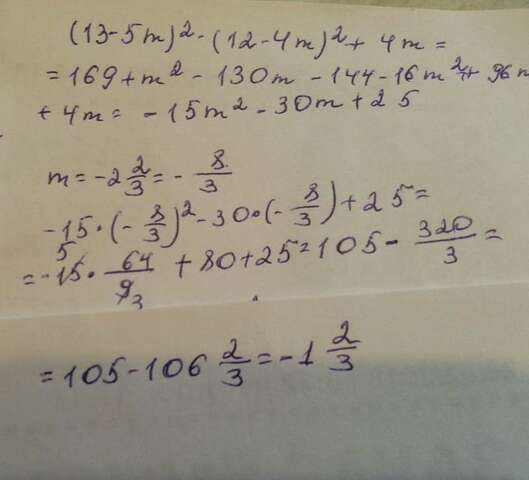 (13-5m)² - (12-4m)² + 4m =
= 169 + m² - 130m - 144 - 16m² + 96m
+ 4m = - 15m² - 30m + 25
m = -2 2/3 = - 8/3
-15 · (- 8/3)² - 30 · (- 8/3) + 25 =
= -15 5 · 64/9 3 + 80 + 25 = 105 - 320/3 =
= 105 - 106 2/3 = -1 2/3